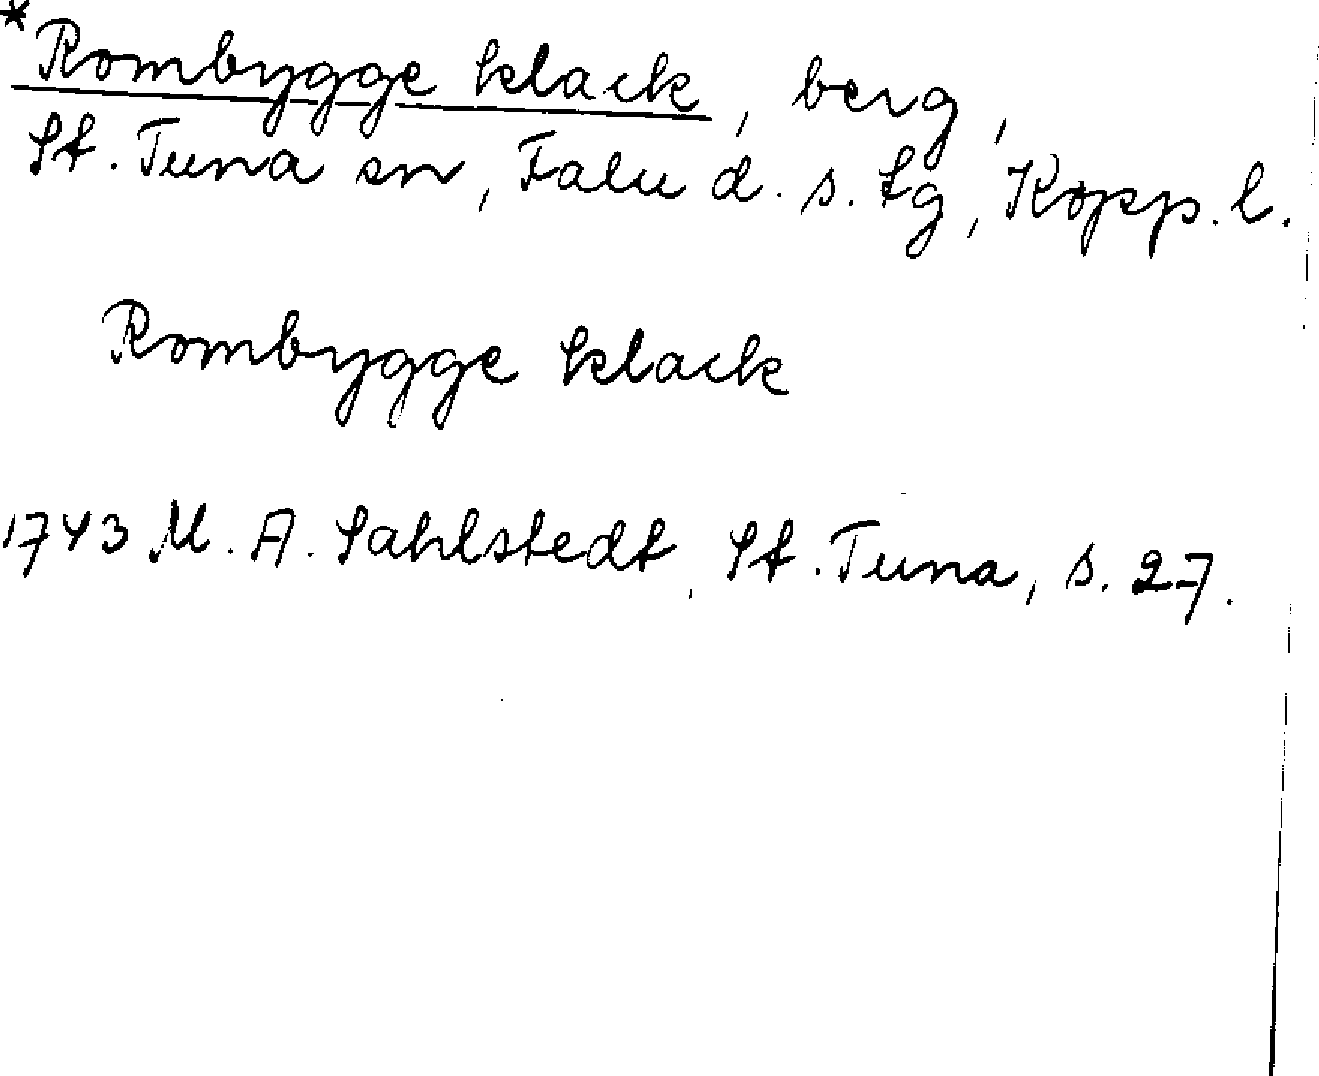 *Rombygge klack, berg,
St. Tuna sn, Falu d. s. tg, Kopp. l.
Rombygge klack
1743 M. A. Sahlstedt, St. Tuna, s. 27.